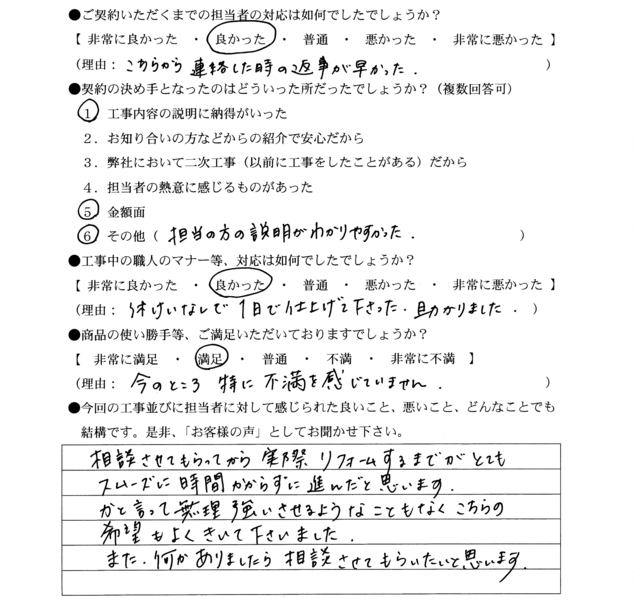 ●ご契約いただくまでの担当者の対応は如何でしたでしょうか？
【 非常に良かった ・ 良かった ・ 普通 ・ 悪かった ・ 非常に悪かった 】
（理由： こちらから連絡した時の返事が早かった. ）
●契約の決め手となったのはどういった所だったでしょうか？（複数回答可）
1．工事内容の説明に納得がいった
2．お知り合いの方などからの紹介で安心だから
3．弊社において二次工事（以前に工事をしたことがある）だから
4．担当者の熱意に感じるものがあった
5．金額面
6．その他（ 担当の方の説明がわかりやすかった. ）
●工事中の職人のマナー等、対応は如何でしたでしょうか？
【 非常に良かった ・ 良かった ・ 普通 ・ 悪かった ・ 非常に悪かった 】
（理由： 休けいなしで 1日で仕上げて下さった. 助かりました. ）
●商品の使い勝手等、ご満足いただいておりますでしょうか？
【 非常に満足 ・ 満足 ・ 普通 ・ 不満 ・ 非常に不満 】
（理由： 今のところ 特に 不満を感じていません. ）
●今回の工事並びに担当者に対して感じられた良いこと、悪いこと、どんなことでも
結構です。是非、「お客様の声」としてお聞かせ下さい。
相談させてもらってから 実際 リフォームするまでがとても
スムーズに時間かからずに進んだと思います.
かと言って無理強いさせるようなこともなくこちらの
希望もよくきいて下さいました.
また. 何かありましたら相談させてもらいたいと思います.